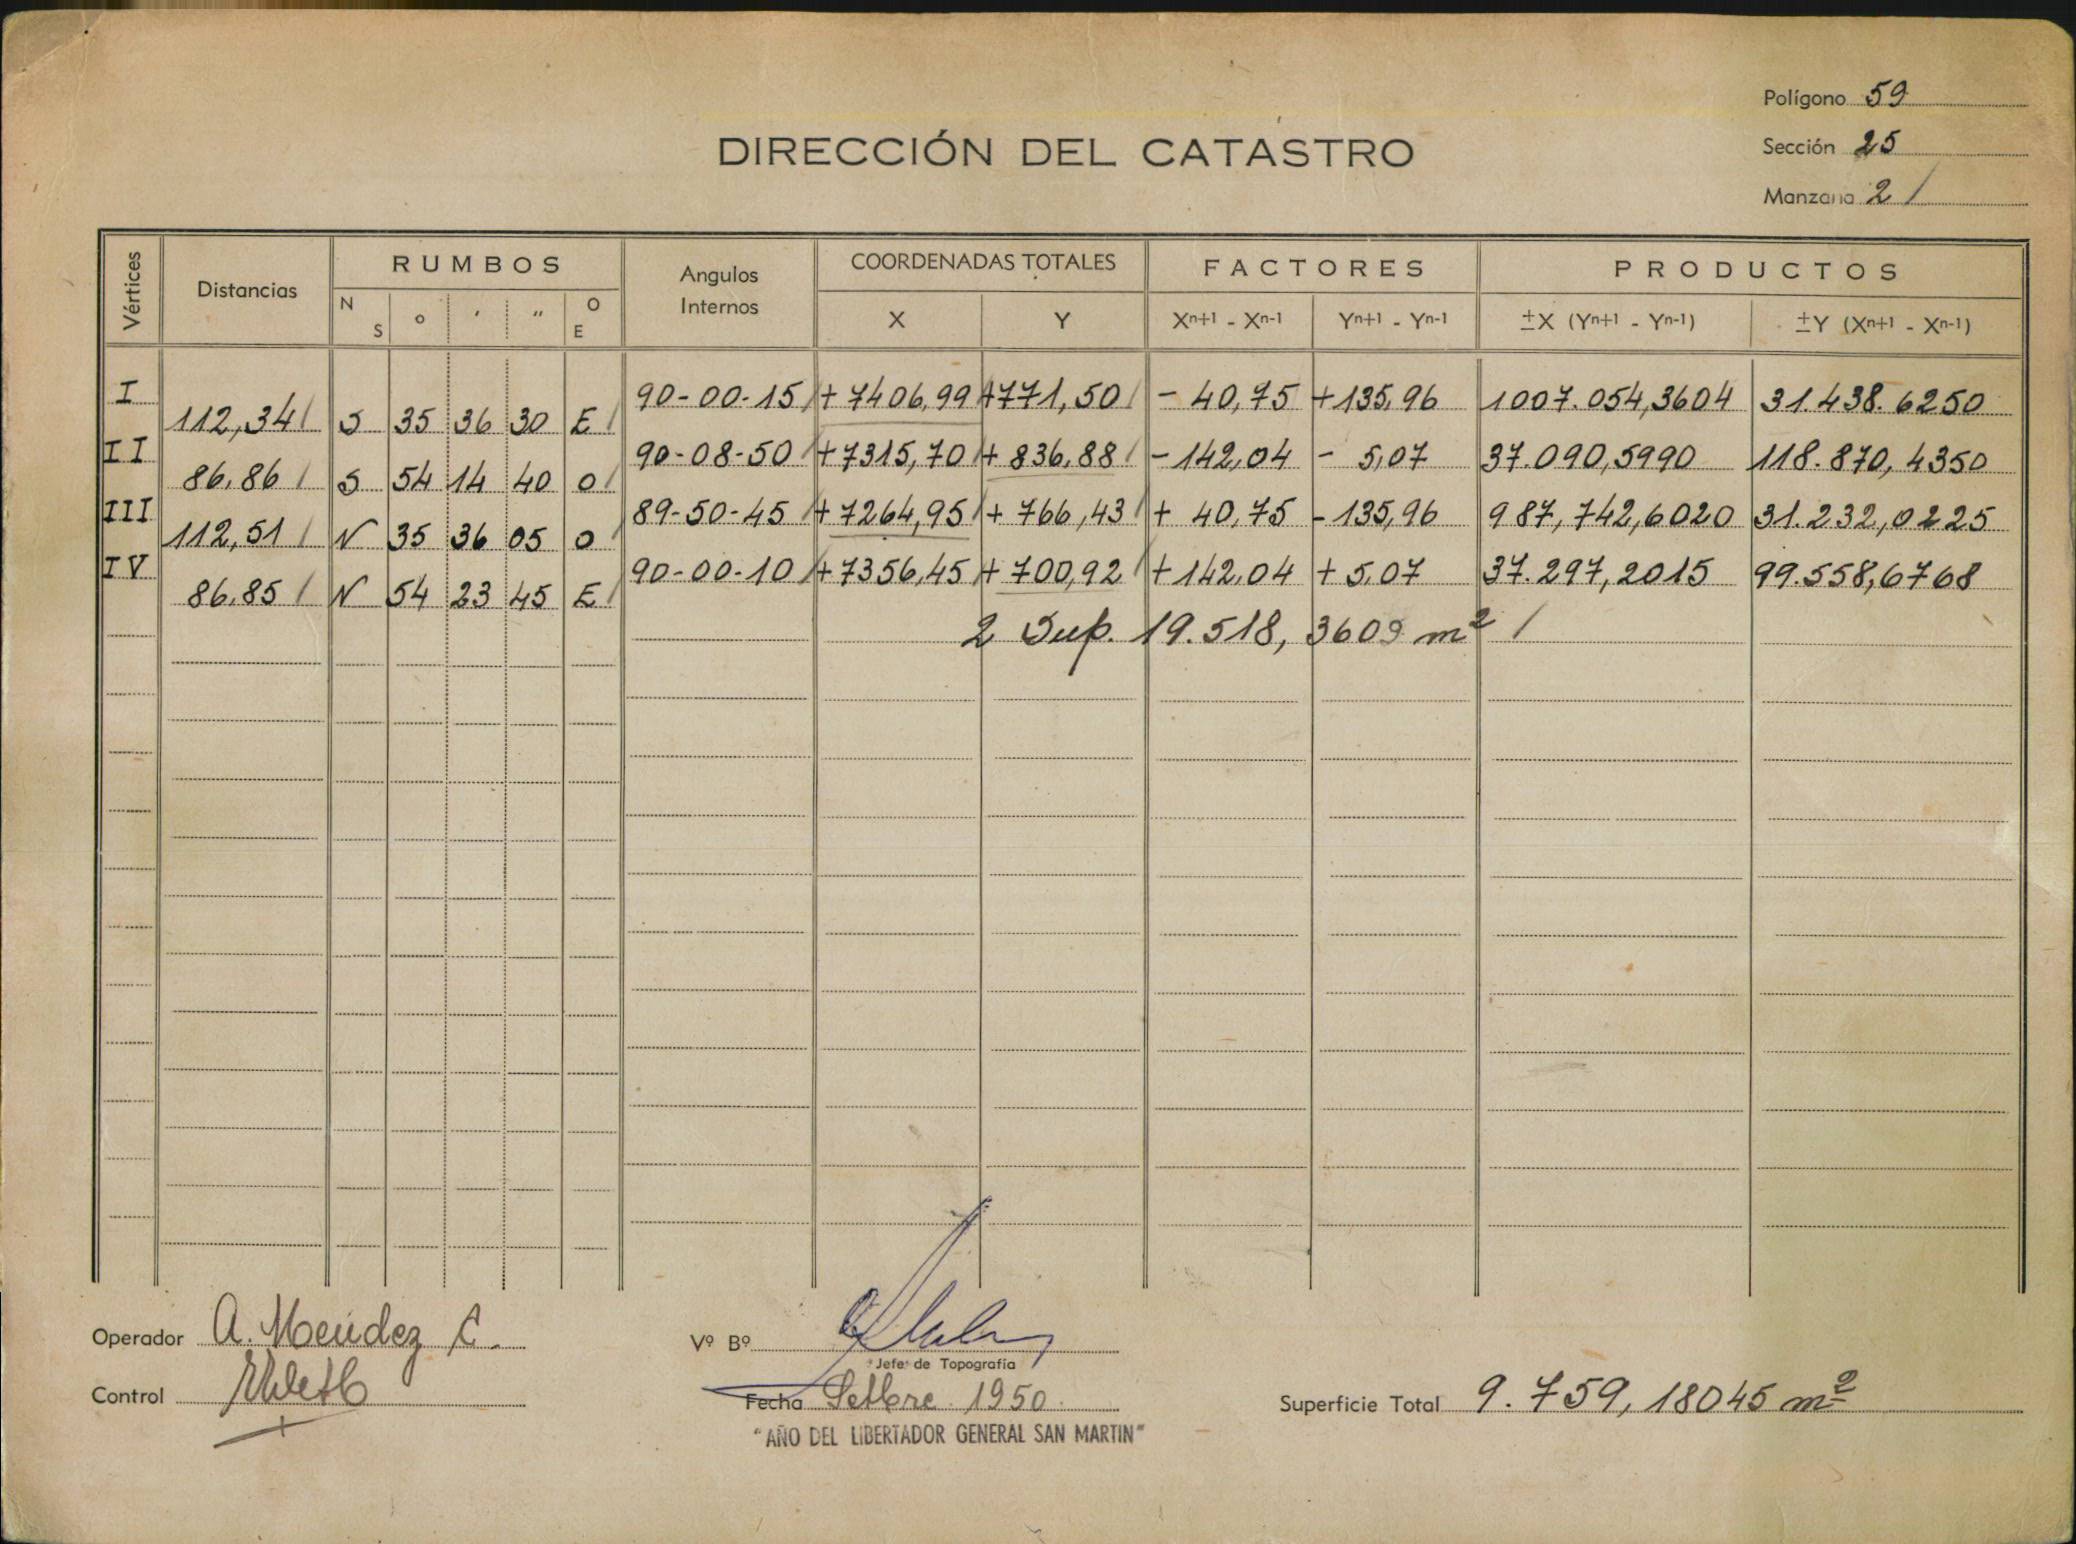 Polígono 59
DIRECCIÓN DEL CATASTRO
Sección 25
Manzana 2 /
Vértices Distancias RUMBOS Angulos Internos COORDENADAS TOTALES FACTORES PRODUCTOS
N S o ' " O E X Y Xn+1 - Xn-1 Yn+1 - Yn-1 ±X (Yn+1 - Yn-1) ±Y (Xn+1 - Xn-1)
I 90-00-15 / + 7406,99 +771,50 / - 40,75 +135,96 1007.054,3604 31.438.6250
112,34 / S 35 36 30 E /
II 90-08-50 / +7315,70 / + 836,88 / -142,04 - 5,07 37.090,5990 118.870,4350
86,86 / S 54 14 40 O /
III 89-50-45 / + 7264,95 / + 766,43 / + 40,75 -135,96 987,742,6020 31.232,0225
112,51 / N 35 36 05 O /
IV 90-00-10 / +7356,45 / + 700,92 / +142,04 + 5,07 37.297,2015 99.558,6768
86,85 / N 54 23 45 E /
2 Sup. 19.518, 3609 m² /
Operador A. Mendez C.
Vº Bº
Jefe de Topografía
Control
Fecha Setbre. 1950.
Superficie Total 9.759,18045 m²
"AÑO DEL LIBERTADOR GENERAL SAN MARTIN"